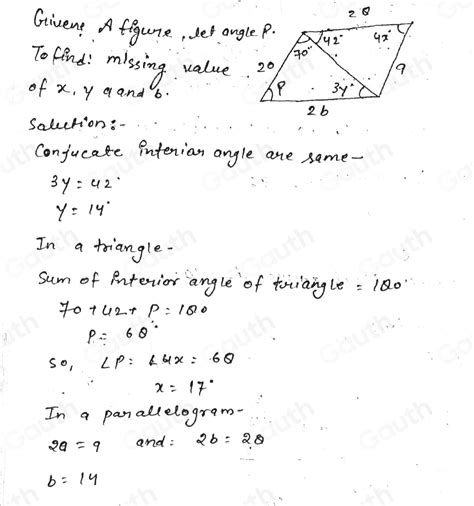 Givens A figure, let angle P.
To find: missing value
of x, y a and b.
28
42°
4x°
70°
20
9
P
3y°
2b
Solution:-
Conjucate interior angle are same-
3y = 42°
y = 14°
In a triangle-
Sum of interior angle of triangle = 180°
70 + 42 + P = 180
P = 68°
so, ∠P = ∠4x = 68
x = 17°
In a parallelogram-
20 = 9 and: 2b = 28
b = 14
Gauth